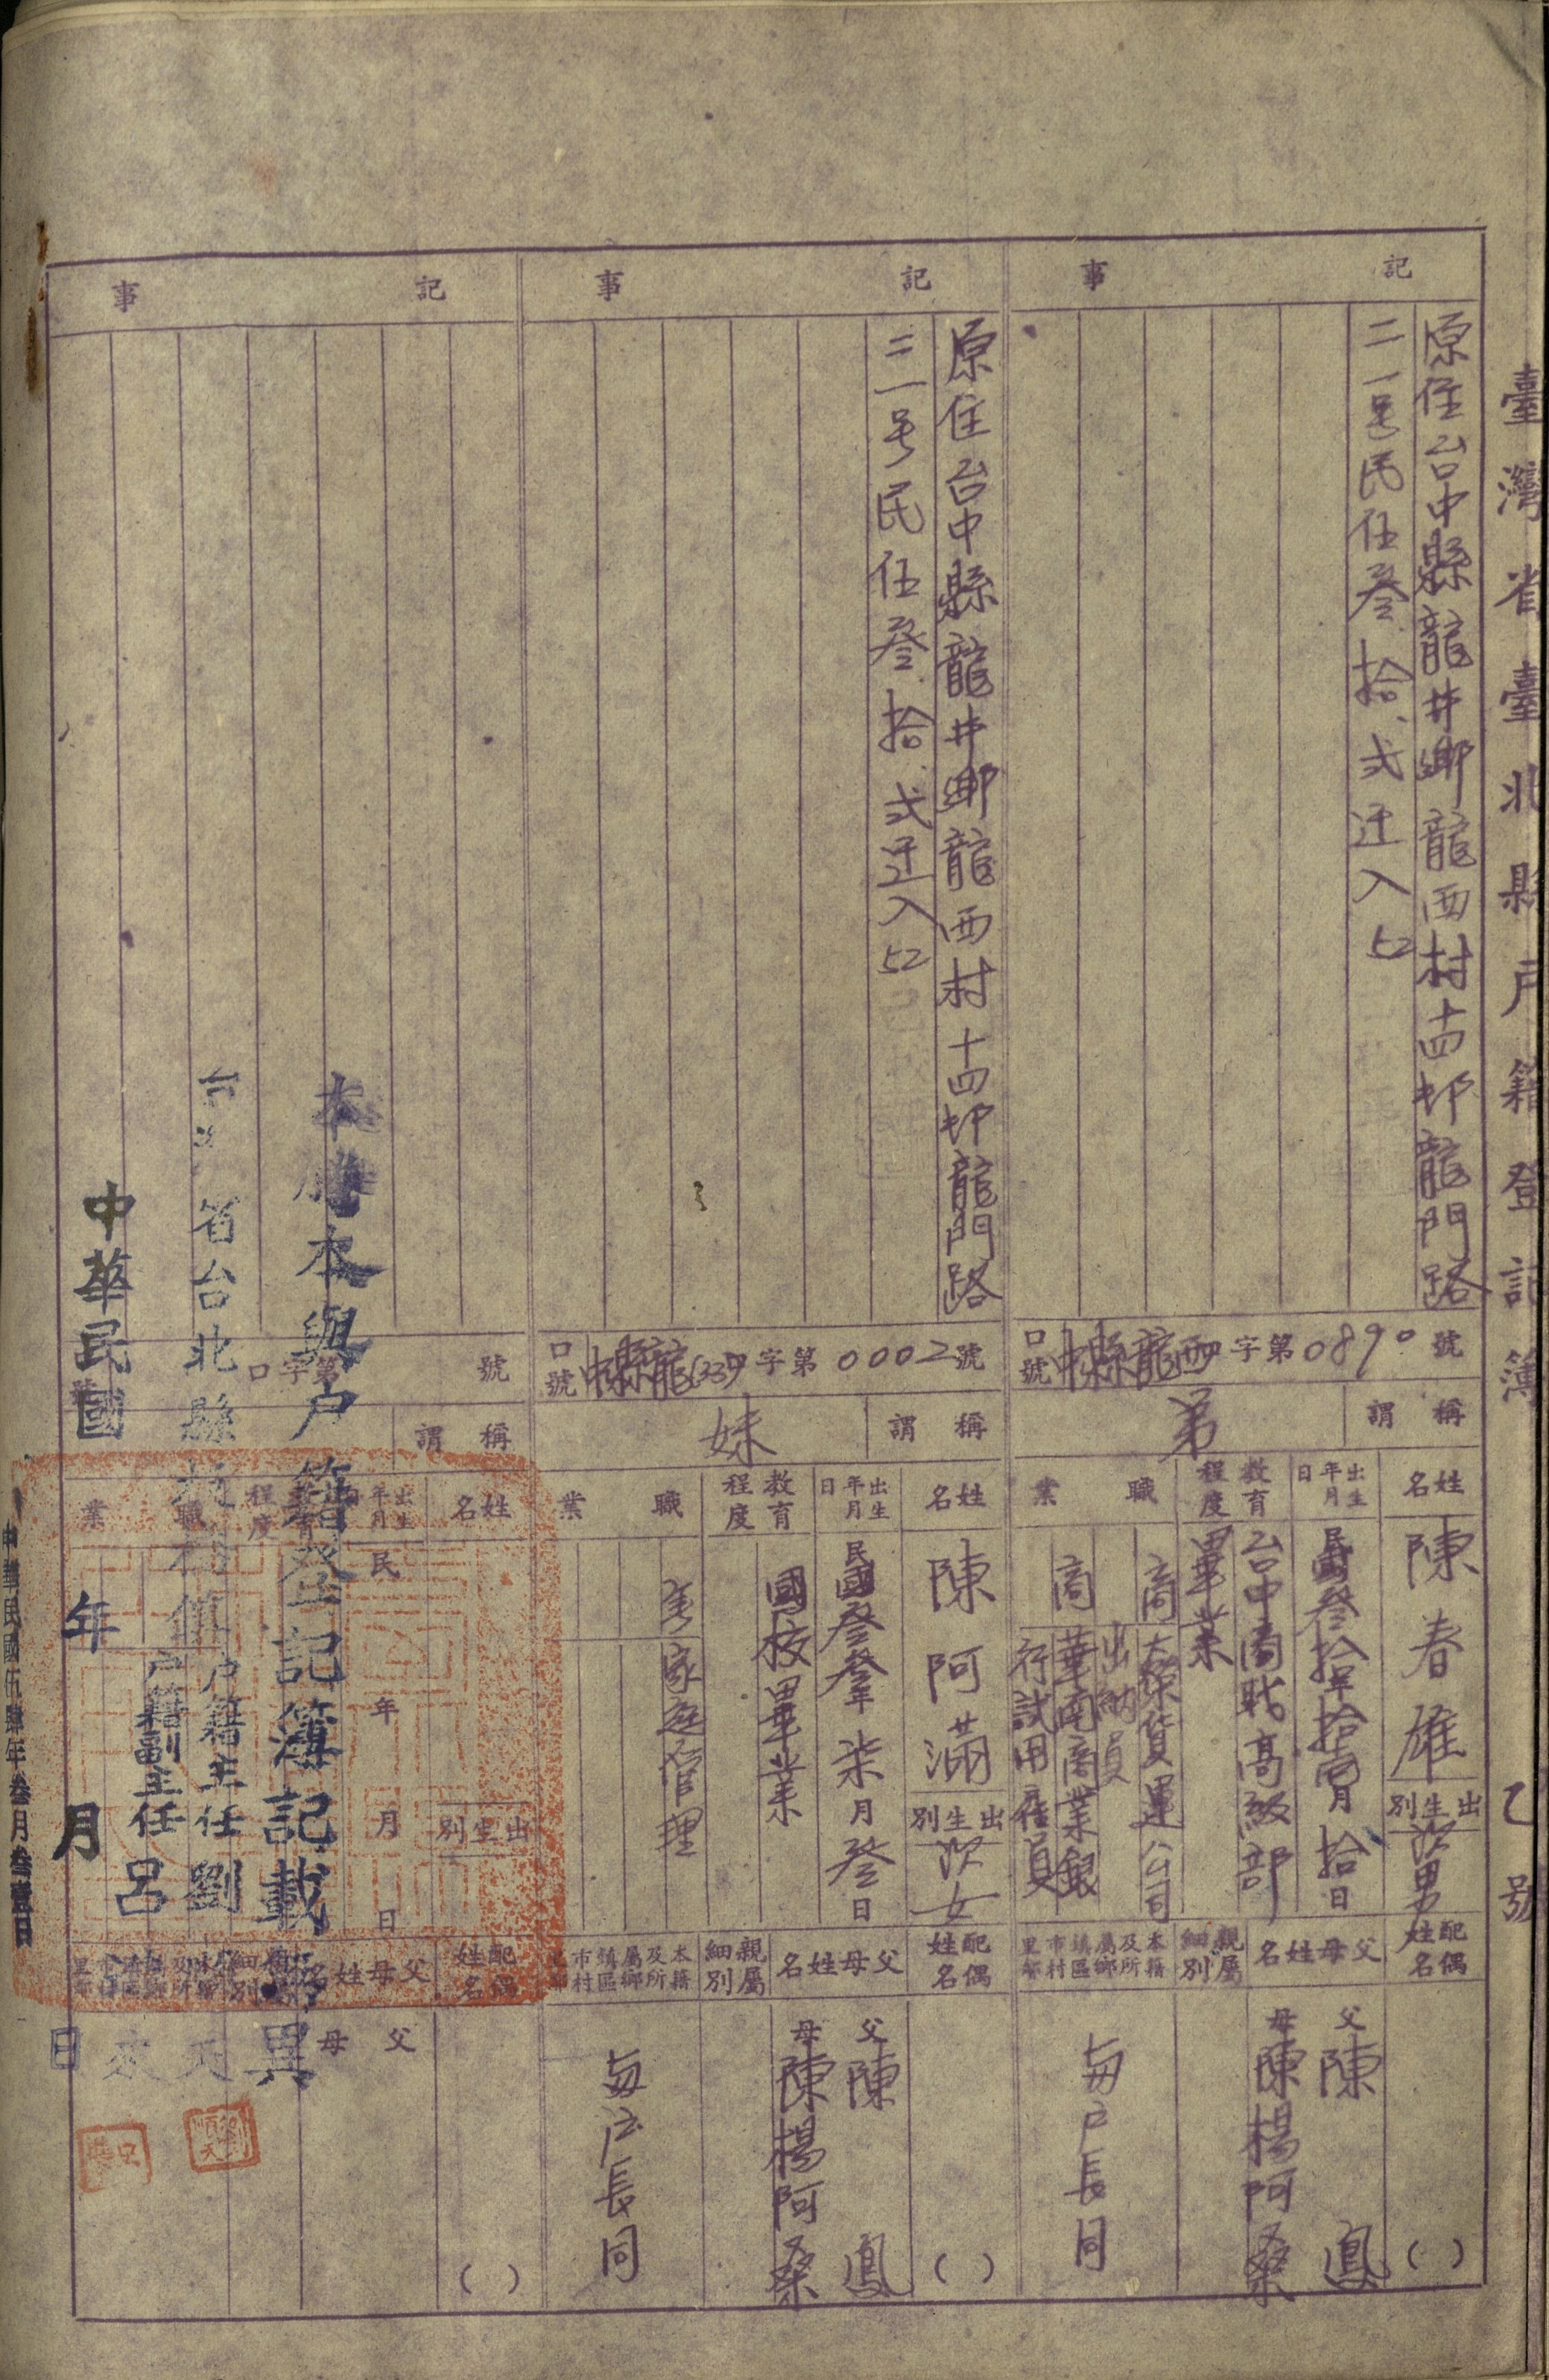 臺灣省臺北縣戶籍登記簿 乙號
記事
原住台中縣龍井鄉龍西村十四邻龍門路
二一号民伍叁、拾、弍迁入52
口號 中縣龍西口字第0890號
稱謂 弟
姓名 陳春雄
出生別 次男
出生年月日 民國叁拾年拾壹月拾日
教育程度 台中商職高級部
畢業
職業
商 大榮貨運公司
出納員
商 華南商業銀
行試用雇員
配偶姓名 ( )
父母姓名
父 陳鳳
母 陳楊阿桑
親屬細別
本籍及所屬鄉鎮區村市里鄰
與戶長同
記事
原住台中縣龍井鄉龍西村十四邻龍門路
二一号民伍叁、拾、弍迁入52
口號 中縣龍(33)口字第0002號
稱謂 妹
姓名 陳阿滿
出生別 次女
出生年月日 民國叁叁年柒月叁日
教育程度 國校畢業
職業
家庭管理
配偶姓名 ( )
父母姓名
父 陳鳳
母 陳楊阿桑
親屬細別
本籍及所屬鄉鎮區村市里鄰
與戶長同
記事
口號 字第 號
稱謂
姓名
出生別
出生年月日 民 年 月 日
教育程度
職業
配偶姓名 ( )
父母姓名
父
母
本謄本與戶籍登記簿記載無異
省台北縣
戶籍主任劉
戶籍副主任呂
中華民國 年 月 日
中華民國伍肆年叁月叁壹日